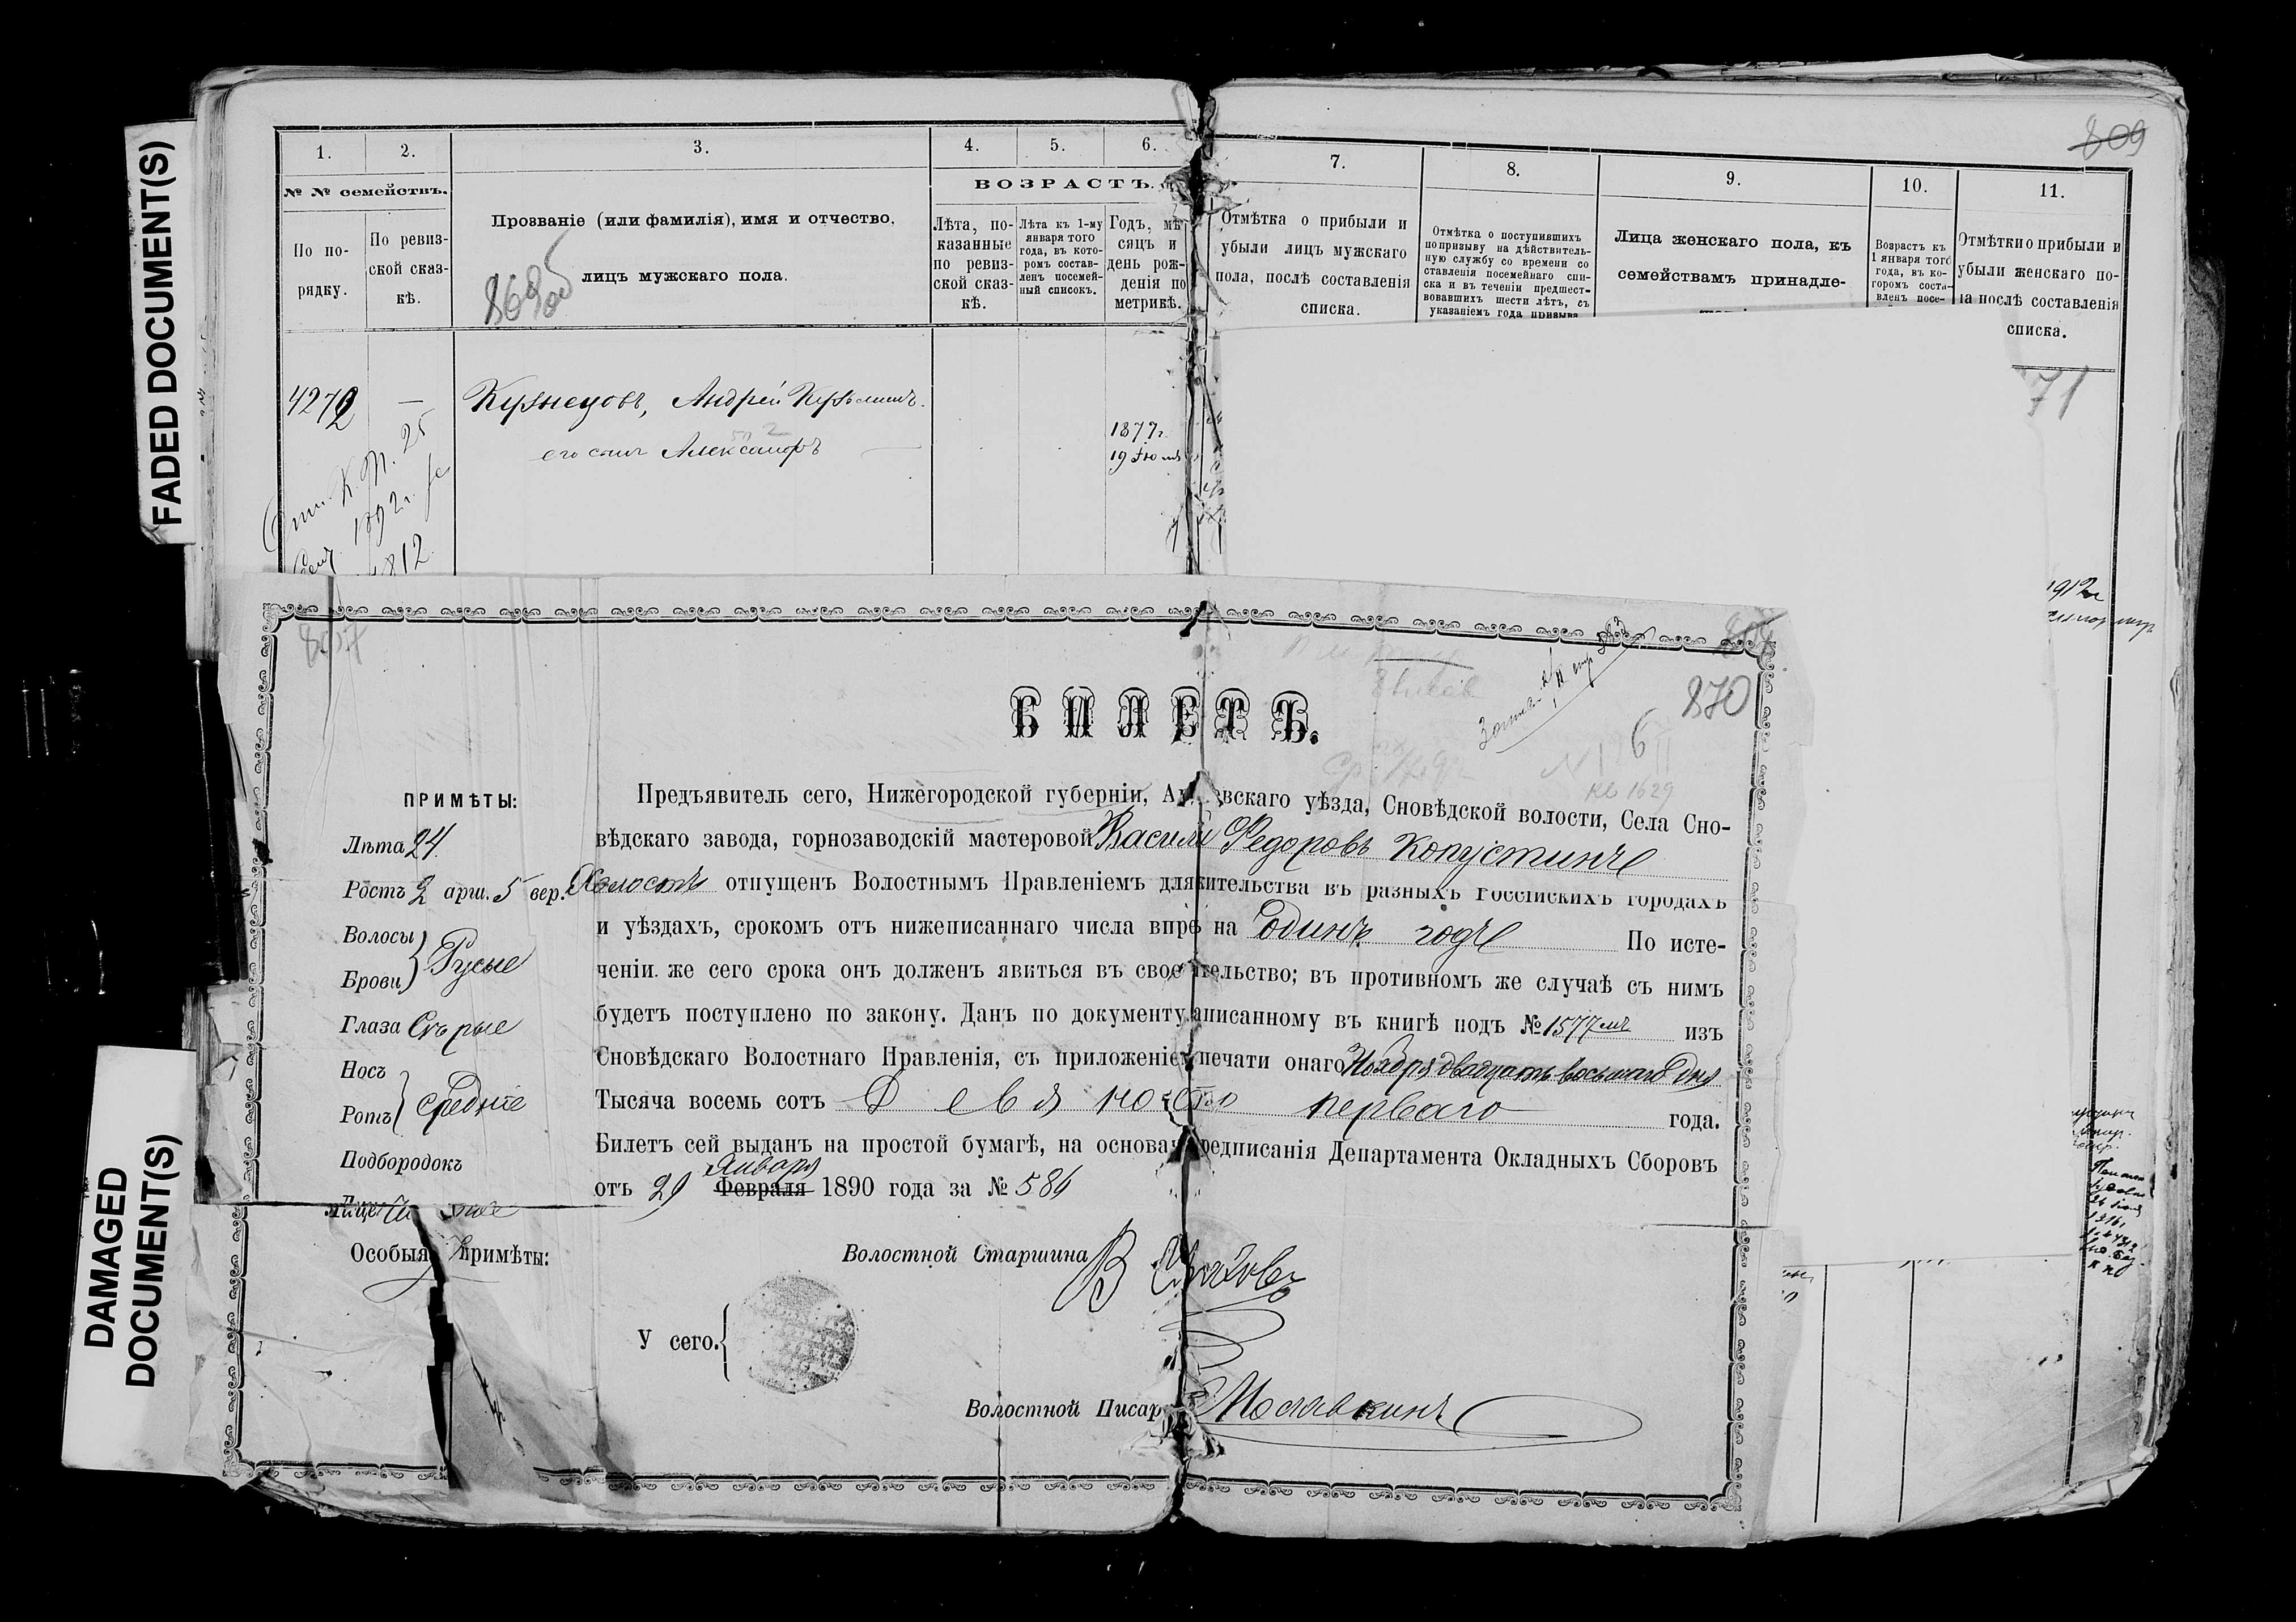 FADED DOCUMENT(S)
DAMAGED DOCUMENT(S)
809
1. 2. 3. 4. 5. 6. 7. 8. 9. 10. 11.
№ № семействъ.
По порядку.
По ревизской сказкѣ.
Прозваніе (или фамилія), имя и отчество,
лицъ мужскаго пола.
ВОЗРАСТЪ.
Лѣта, показанные по ревизской сказкѣ.
Лѣта къ 1-му января того года, въ которомъ составленъ посемейный списокъ.
Годъ, мѣсяцъ и день рожденія по метрикѣ.
Отмѣтка о прибыли и убыли лицъ мужскаго пола, послѣ составленія списка.
Отмѣтка о поступившихъ по призыву на дѣйствительную службу со времени составленія посемейнаго списка и въ теченіи предшествовавшихъ шести лѣтъ, съ указаніемъ года призыва
Лица женскаго пола, къ
семействамъ принадле-
Возрастъ къ 1 января того года, въ которомъ составленъ посе-
Отмѣтки о прибыли и убыли женскаго по-
ла послѣ составленія
списка.
4272 — Кузнецовъ, Андрей Кузьминъ.
его сынъ Александръ
1877г.
19 Іюля
71
25
1892г.
812
1912г
807
870
6
кв 1629
БИЛЕТЪ.
ПРИМѢТЫ:
Лѣта 24
Ростъ 2 арш. 5 вер.
Волосы
Брови } Русые
Глаза Сѣрые
Носъ
Ротъ } средніе
Подбородокъ
Лице
Особыя примѣты:
Предъявитель сего, Нижегородской губерніи, Ар вскаго уѣзда, Сновѣдской волости, Села Сно-
вѣдскаго завода, горнозаводскій мастеровой Василій Федоровъ Копустинъ
Холостъ отпущенъ Волостнымъ Правленіемъ для жительства въ разныхъ Россійскихъ городахъ
и уѣздахъ, срокомъ отъ нижеписаннаго числа впре на Одинъ годъ По исте-
ченіи же сего срока онъ долженъ явиться въ свое тельство; въ противномъ же случаѣ съ нимъ
будетъ поступлено по закону. Данъ по документу аписанному въ книгѣ подъ № 1577мъ изъ
Сновѣдскаго Волостнаго Правленія, съ приложеніе печати онаго Ноября двадцать восьмаго дня
Тысяча восемь сотъ Девяносто перваго года.
Билетъ сей выданъ на простой бумагѣ, на основан редписанія Департамента Окладныхъ Сборовъ
Января
отъ 29 Февраля 1890 года за № 584
Волостной Старшина В
У сего.{
Волостной Писар